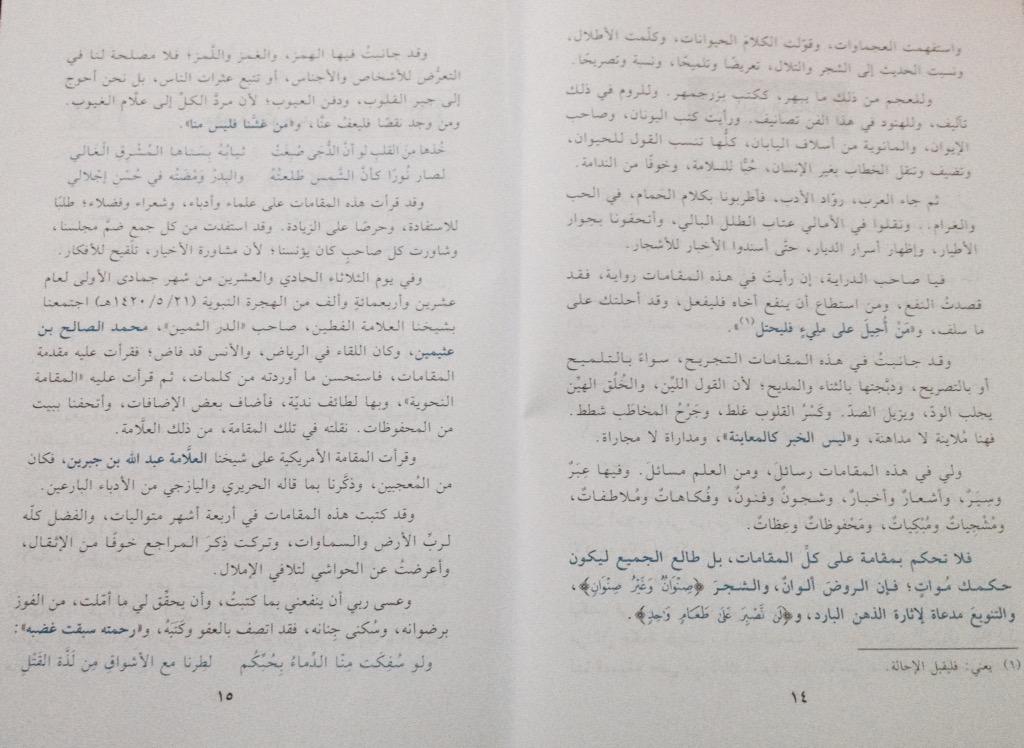 واستفهمت العجماوات، وقوّلت الكلامَ الحيوانات، وكلّمت الأطلال،
ونسبت الحديث إلى الشجر والتلال، تعريضًا وتلميحًا، ونسبة وتصريحًا.
وللعجم من ذلك ما يبهر، ككتب بزرجمهر. وللروم في ذلك
تآليف، وللهنود في هذا الفن تصانيف. ورأيت كتب اليونان، وصاحب
الإيوان، والمانوية من أسلاف اليابان، كلُّها تنسب القول للحيوان،
وتضيف وتنقل الخطاب بغير الإنسان، حُبًّا للسلامة، وخوفًا من الندامة.
ثم جاء العرب، روّاد الأدب، فأطربونا بكلام الحَمام، في الحب
والغرام.. ونقلوا في الأمالي عتاب الطلل البالي، وأتحفونا بجوار
الأطيار، وإظهار أسرار الديار، حتَّى أسندوا الأخبار للأشجار.
فيا صاحب الدراية، إن رأيتَ في هذه المقامات رواية، فقد
قصدتُ النفع، ومن استطاع أن ينفع أخاه فليفعل، وقد أحلتك على
ما سلف، و«مَنْ أُحِيلَ على مليءٍ فليحتل(١)».
وقد جانبتُ في هذه المقامات التجريح، سواءً بالتلميح
أو بالتصريح، ودبّجتها بالثناء والمديح؛ لأن القول الليّن، والخُلُق الهيّن
يجلب الودّ، ويزيل الصدّ. وكَسْرُ القلوب غلط، وجَرْحُ المخاطَب شطط.
فهنا مُلاينة لا مداهنة، و«ليس الخبر كالمعاينة»، ومداراة لا مجاراة.
ولي في هذه المقامات رسائل، ومن العلم مسائل. وفيها عِبَرٌ
وسِيَرٌ، وأشعارٌ وأخبارٌ، وشجونٌ وفنونٌ، وفُكاهاتٌ ومُلاطفاتٌ،
ومُشْجِياتٌ ومُبْكِياتٌ، ومَحْفوظاتٌ وعِظاتٌ.
فلا تحكم بمقامة على كلِّ المقامات، بل طالع الجميع ليكون
حكمك مُواتٍ؛ فإن الروضَ ألوانٌ، والشجرَ ﴿صِنْوَانٌ وَغَيْرُ صِنْوَانٍ﴾،
والتنويعَ مدعاة لإثارة الذهن البارد، و﴿لَن نَّصْبِرَ عَلَىٰ طَعَامٍ وَٰحِدٍ﴾.
(١) يعني: فليقبل الإحالة.
١٤
وقد جانبتُ فيها الهمز، والغمز واللَّمز؛ فلا مصلحة لنا في
التعرُّض للأشخاص والأجناس، أو تتبع عثرات الناس، بل نحن أحوج
إلى جبر القلوب، ودفن العيوب؛ لأن مردَّ الكلِّ إلى علَّام الغيوب.
ومن وجد نقصًا فليعفُ عنَّا، و«مَن غشَّنا فليس منا».
خُذها مِنَ القلبِ لو أنَّ الدُّجَى صُبِغَتْ ثيابُهُ بسَناها المُشْرقِ الغَالي
لصار نُورًا كأنَّ الشَّمس طَلعتُهُ والبدرُ وَمْضَتُه في حُسْنِ إجْلالي
وقد قرأت هذه المقامات على علماء وأدباء، وشعراء وفضلاء؛ طلبًا
للاستفادة، وحرصًا على الزيادة. وقد استفدت من كل جمعٍ ضمَّ مجلسنا،
وشاورت كل صاحبٍ كان يؤنسنا؛ لأن مشاورة الأخيار، تلقيح للأفكار.
وفي يوم الثلاثاء الحادي والعشرين من شهر جمادى الأولى لعام
عشرين وأربعمائةٍ وألف من الهجرة النبوية (١٤٢٠/٥/٢١هـ) اجتمعنا
بشيخنا العلامة الفطين، صاحب «الدر الثمين»، محمد الصالح بن
عثيمين، وكان اللقاء في الرياض، والأنس قد فاض؛ فقرأت عليه مقدمة
المقامات، فاستحسن ما أوردته من كلمات، ثم قرأت عليه «المقامة
النحوية»، وبها لطائف نديّة، فأضاف بعض الإضافات، وأتحفنا ببيت
من المحفوظات. نقلته في تلك المقامة، من ذلك العلَّامة.
وقرأت المقامة الأمريكية على شيخنا العلَّامة عبد الله بن جبرين، فكان
من المُعجبين، وذكَّرنا بما قاله الحريري واليازجي من الأدباء البارعين.
وقد كتبت هذه المقامات في أربعة أشهر متواليات، والفضل كلّه
لربِّ الأرض والسماوات، وتركت ذِكرَ المراجع خوفًا من الإثقال،
وأعرضتُ عن الحواشي لتلافي الإملال.
وعسى ربي أن ينفعني بما كتبتُ، وأن يحقِّق لي ما أمّلت، من الفوز
برضوانه، وسُكنى جِنانه، فقد اتصف بالعفو وكَتَبَهُ، و«رحمته سبقت غضبه»:
ولو سُفكَت مِنّا الدِّماءُ بِحُبِّكُم لطِرنا مع الأشواقِ مِن لَذَّة القَتْلِ
١٥